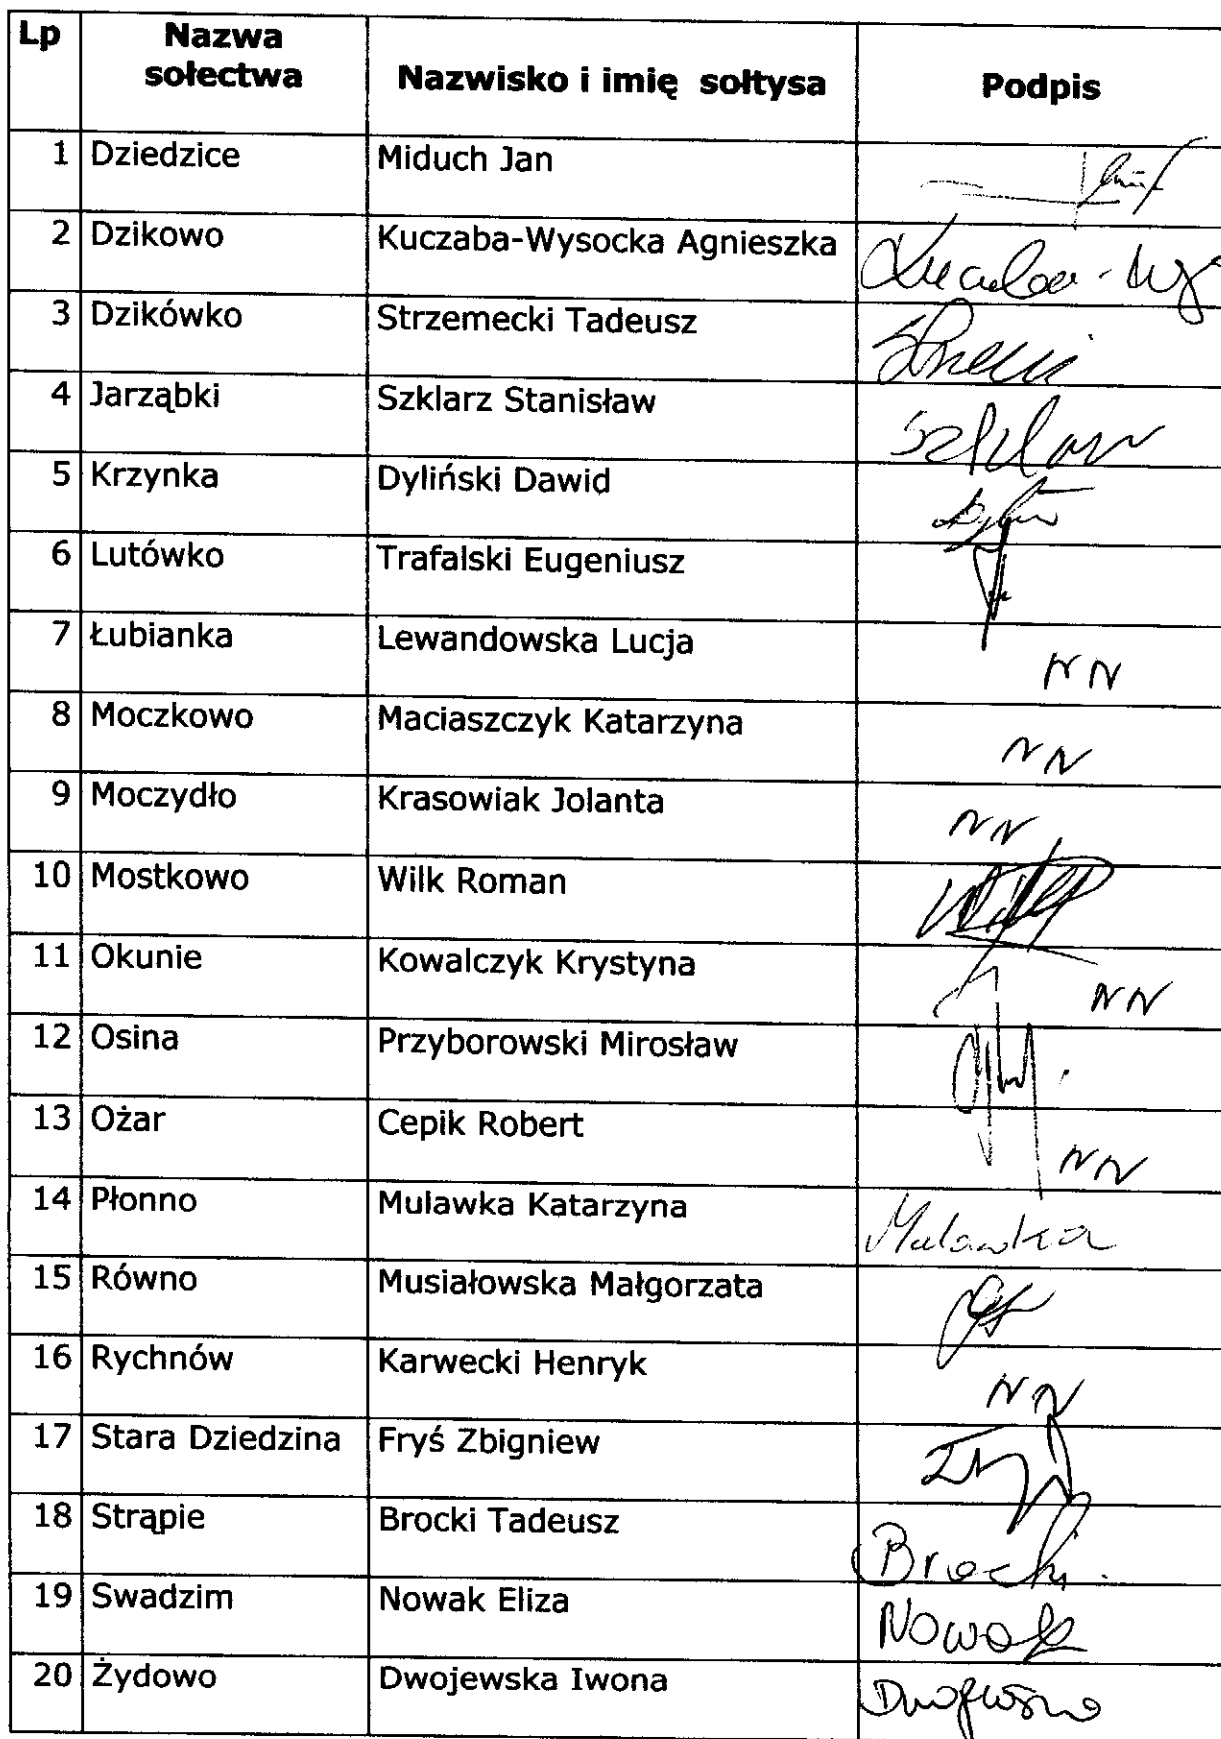 Lp Nazwa sołectwa Nazwisko i imię sołtysa Podpis
1 Dziedzice Miduch Jan
2 Dzikowo Kuczaba-Wysocka Agnieszka
3 Dzikówko Strzemecki Tadeusz
4 Jarząbki Szklarz Stanisław Szklarz
5 Krzynka Dyliński Dawid
6 Lutówko Trafalski Eugeniusz
7 Łubianka Lewandowska Lucja NN
8 Moczkowo Maciaszczyk Katarzyna NN
9 Moczydło Krasowiak Jolanta NN
10 Mostkowo Wilk Roman
11 Okunie Kowalczyk Krystyna NN
12 Osina Przyborowski Mirosław
13 Ożar Cepik Robert NN
14 Płonno Mulawka Katarzyna Mulawka
15 Równo Musiałowska Małgorzata
16 Rychnów Karwecki Henryk NN
17 Stara Dziedzina Fryś Zbigniew
18 Strąpie Brocki Tadeusz Brocki
19 Swadzim Nowak Eliza Nowak
20 Żydowo Dwojewska Iwona